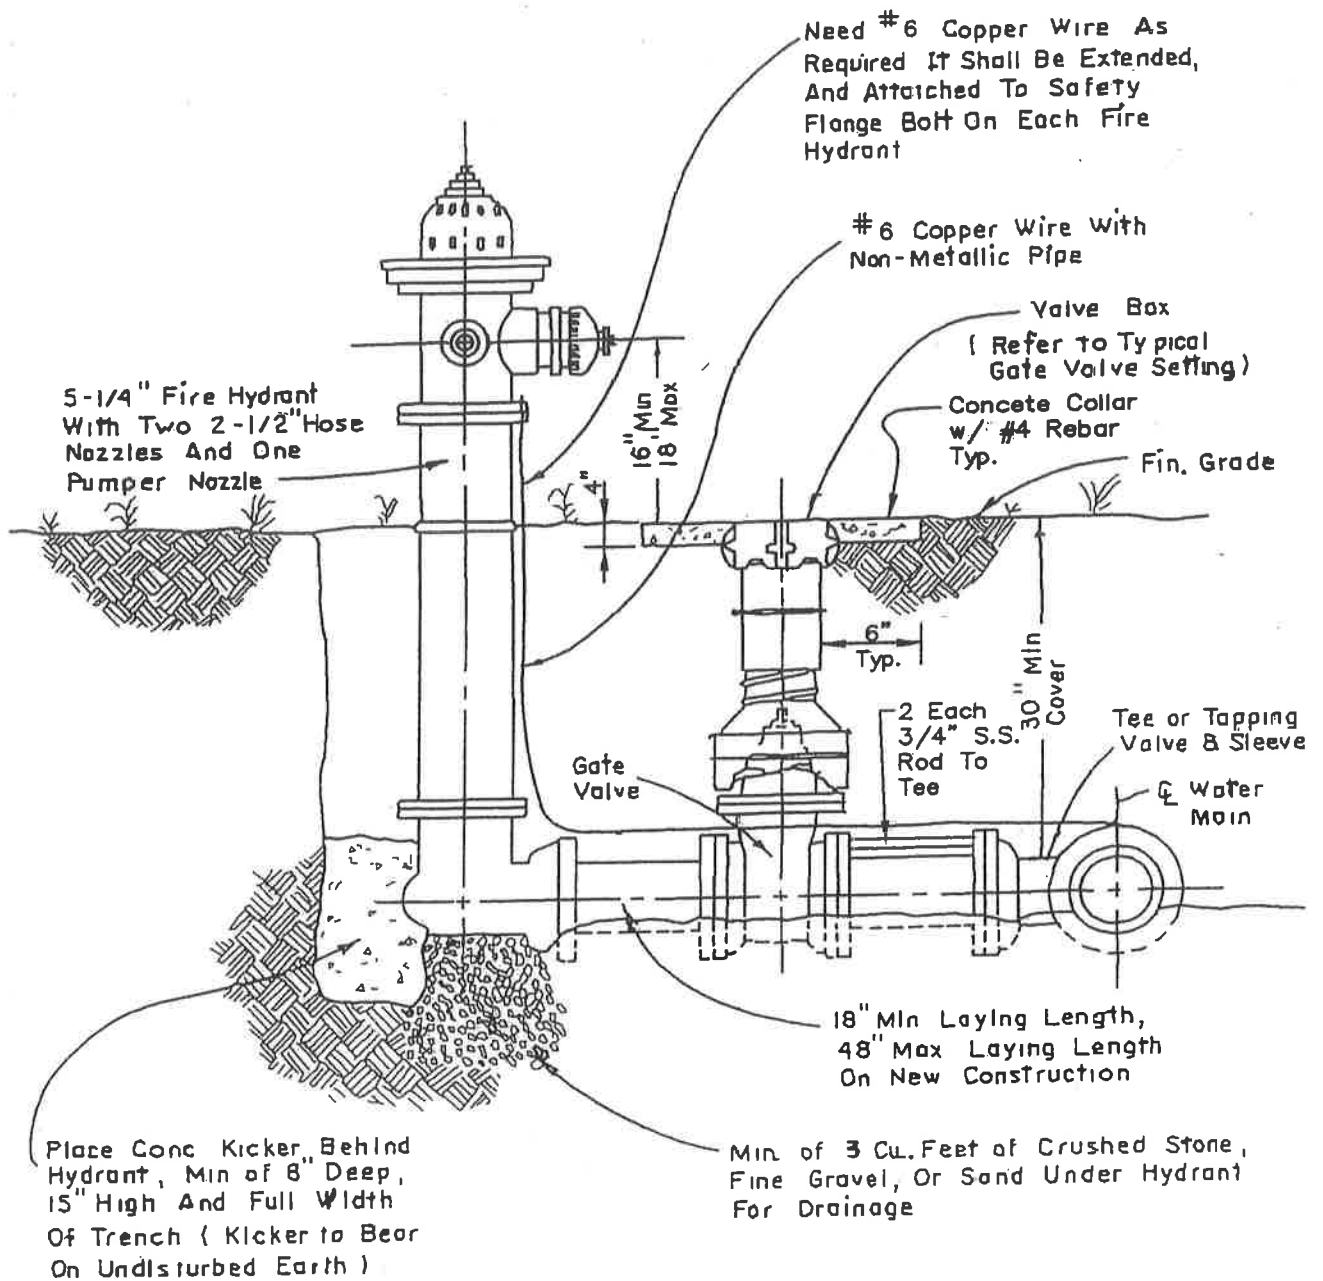 Need #6 Copper Wire As
Required It Shall Be Extended,
And Attatched To Safety
Flange Bolt On Each Fire
Hydrant
#6 Copper Wire With
Non-Metallic Pipe
Valve Box
( Refer to Typical
Gate Valve Setting )
Concete Collar
w/ #4 Rebar
Typ.
Fin. Grade
5-1/4" Fire Hydrant
With Two 2-1/2" Hose
Nozzles And One
Pumper Nozzle
16" Min
18" Max
4"
6"
Typ.
30" Min
Cover
2 Each
3/4" S.S.
Rod To
Tee
Tee or Tapping
Valve & Sleeve
Gate
Valve
℄ Water
Main
18" Min Laying Length,
48" Max Laying Length
On New Construction
Place Conc Kicker Behind
Hydrant, Min of 8" Deep,
15" High And Full Width
Of Trench ( Kicker to Bear
On Undisturbed Earth )
Min of 3 Cu. Feet of Crushed Stone,
Fine Gravel, Or Sand Under Hydrant
For Drainage